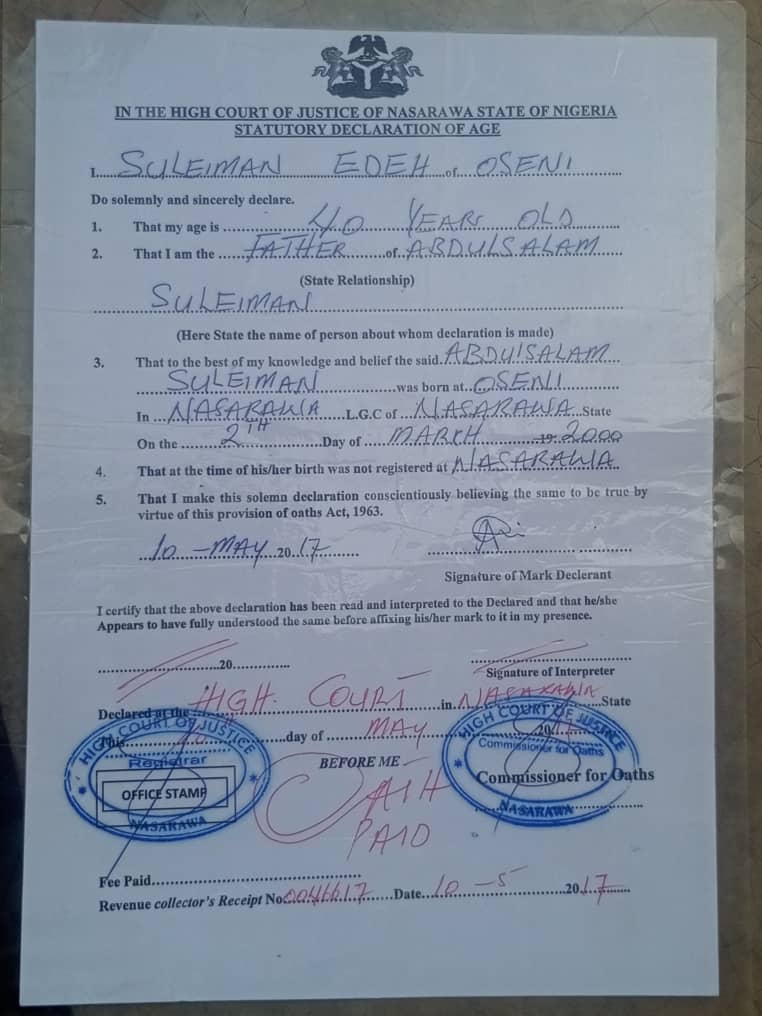 IN THE HIGH COURT OF JUSTICE OF NASARAWA STATE OF NIGERIA
STATUTORY DECLARATION OF AGE
I.....SULEIMAN EDEH of OSENI
Do solemnly and sincerely declare.
1. That my age is 40 YEARS OLD
2. That I am the FATHER of ABDULSALAM
(State Relationship)
SULEIMAN
(Here State the name of person about whom declaration is made)
3. That to the best of my knowledge and belief the said ABDULSALAM
SULEIMAN was born at OSENI
In NASARAWA L.G.C of NASARAWA State
On the 2TH Day of MARCH 19 2000
4. That at the time of his/her birth was not registered at NASARAWA
5. That I make this solemn declaration conscientiously believing the same to be true by
virtue of this provision of oaths Act, 1963.
10 - MAY 20 17
Signature of Mark Declerant
I certify that the above declaration has been read and interpreted to the Declared and that he/she
Appears to have fully understood the same before affixing his/her mark to it in my presence.
20
Signature of Interpreter
Declared at the HIGH COURT in NASARAWA State
This day of MAY 20
BEFORE ME
HIGH COURT OF JUSTICE
Registrar
OFFICE STAMP
NASARAWA
HIGH COURT OF JUSTICE
Commissioner for Oaths
Commissioner for Oaths
NASARAWA
PAID
Fee Paid
Revenue collector's Receipt No 0046617 Date 10 - 5 20 17